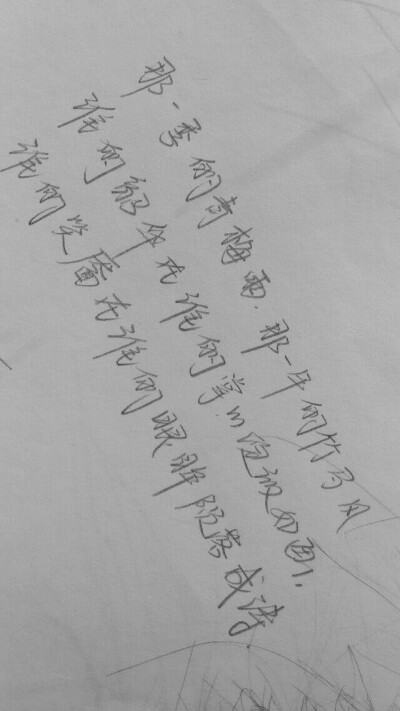 那一季的青梅雨.那一年的竹马风
谁的韶华在谁的掌心绽放如画,
谁的笑靥在谁的眼眸陨落成诗